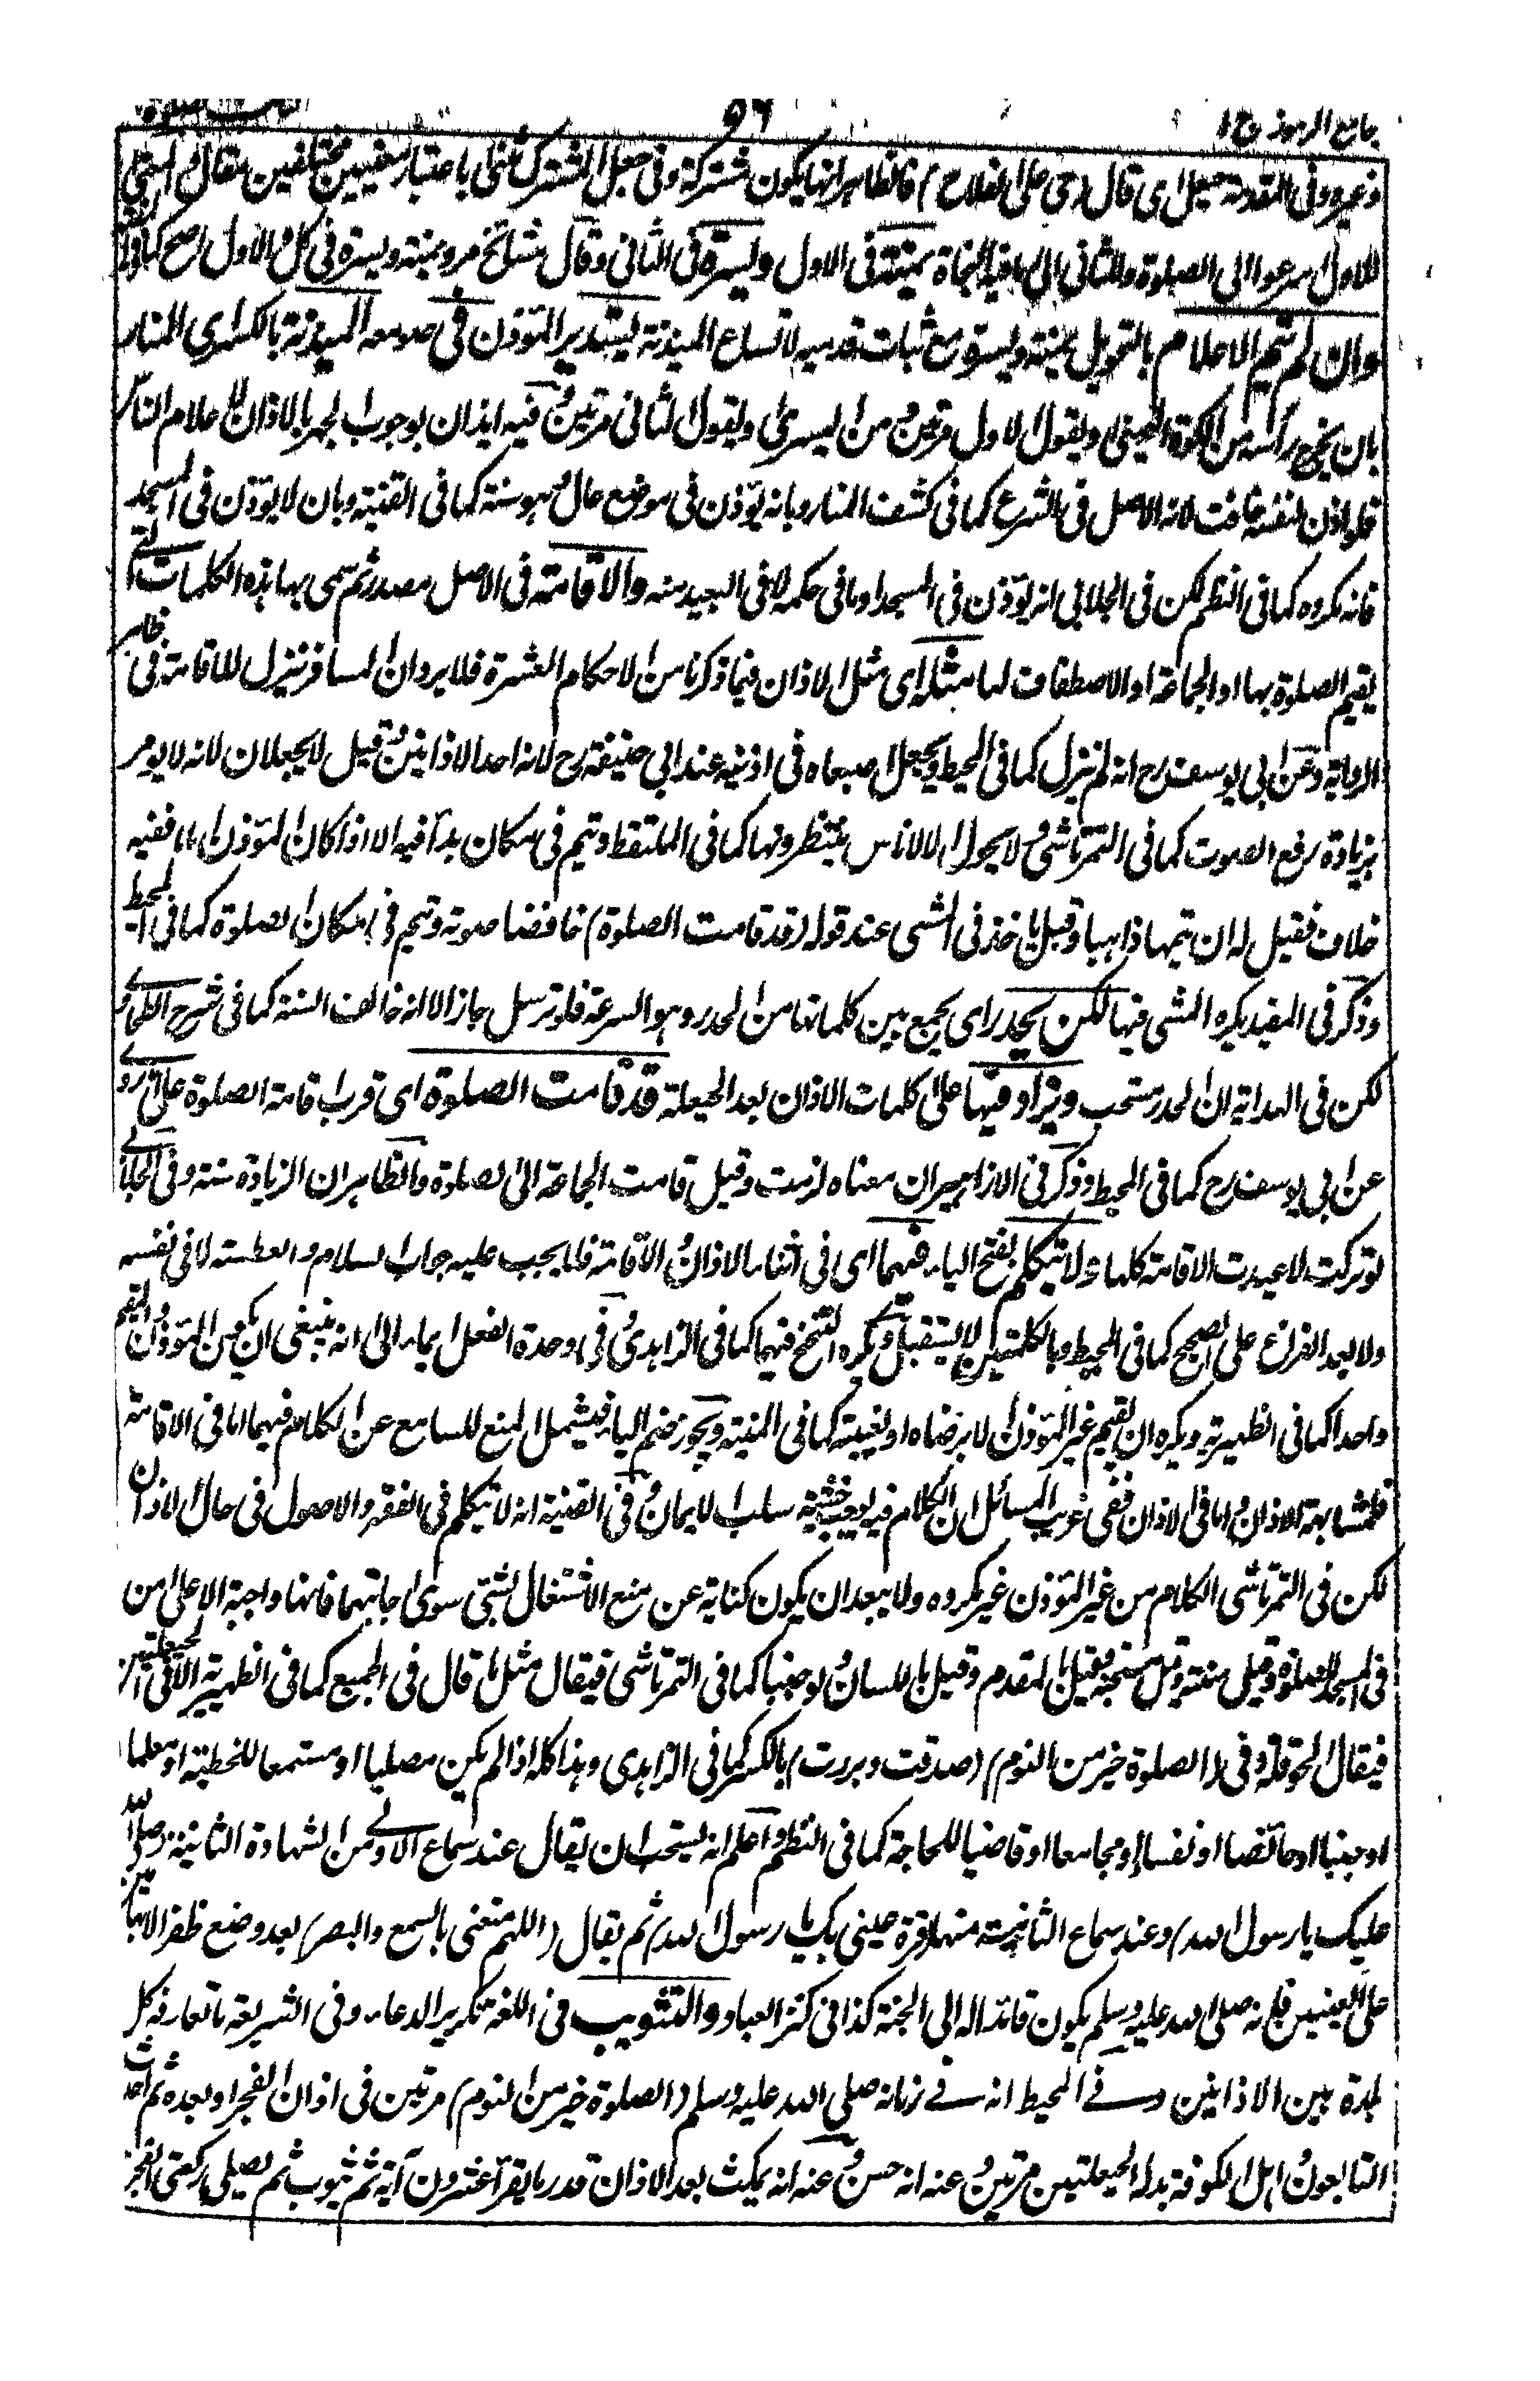 جامع الرموز ج ١
٥٦
وغيره وفى المقدمة حيعل اى قال (حى على الفلاح) فالظاهر انها يكون مشتركة وفى جعل المشترك مثنى باعتبار معنيين مختلفين مقال
للاول اسرعوا الى الصلوة وللثانى الى ما فيه النجاة يمينه فى الاول ويسرة فى الثانى وقال مشائخ مرو يمنة ويسرة فى كل والاول اصح كما فى
وان لم يتم الاعلام بالتحويل يمينه ويسرة مع ثبات قدميه لاتساع الميذنة يستدير المؤذن فى صومعه الميذنة بالكسر اى المنار
بان يخرج رأسه من الكوة اليمنى ويقول الاول مرتين ومن اليسرى ويقول الثانى مرتين وفيه ايذان بوجوب الجهر بالاذان لاعلام الناس
فلو اذن لنفسه خافت لانه الاصل فى الشرع كما فى كشف المنار وبانه يؤذن فى موضع عال وهو سنة كما فى القنية وبان لا يؤذن فى المسجد
فانه مكروه كما فى النظم لكن فى الجلابى انه يؤذن فى المسجد او ما فى حكمه لا فى البعيد منه والاقامة فى الاصل مصدر ثم سمى بها هذه الكلمات التى
يقيم الصلوة بها او الجماعة او الاصطفاف لها مثله اى مثل الاذان فيما ذكرنا من الاحكام العشرة فلا يرد ان المسافر ينزل للاقامة فى ظاهر
الرواية وعن ابى يوسف رح انه لم ينزل كما فى المحيط ويجعل اصبعاه فى اذنيه عند ابى حنيفة رح لانه احد الاذانين وقيل لا يجعلان لانه لا يومر
بزيادة رفع الصوت كما فى التمرتاشى ولا يحول الا لاناس ينتظرونها كما فى الملتقط ويتم فى مكان بدأ فيه الا اذا كان المؤذن اماما ففيه
خلاف فقيل له ان يتمها ذاهبا وقيل ياخذ فى المشى عند قوله (قد قامت الصلوة) خافضا صوته ويتم فى مكان الصلوة كما فى المحيط
وذكر فى المفيد يكره المشى فيها لكن يحدر اى يجمع بين كلماتها من الحدر وهو السرعة فلو ترسل جاز الا انه خالف السنة كما فى شرح الطحاوى
لكن فى الهداية ان الحدر مستحب ويزاد فيها على كلمات الاذان بعد الحيعلة قد قامت الصلوة اى قرب اقامة الصلوة على ما روى
عن ابى يوسف رح كما فى المحيط وذكر فى الازاهير ان معناه لزمت وقيل قامت الجماعة الى الصلوة والظاهر ان الزيادة سنة وفى الجلابى
لو تركت لا عيدت الاقامة كلها ولا يتكلم بفتح الياء فيهما اى فى اثناء الاذان والاقامة فلا يجب عليه جواب السلام والعطسة لا فى نفسه
ولا بعد الفراغ على الصحيح كما فى المحيط وبالكلمتين لا يستقبل ويكره التنحنح فيهما كما فى الزاهدى وفى وحدة الفعل ايماء الى انه ينبغى ان يكون المؤذن والمقيم
واحدا كما فى الظهيرية ويكره ان يقيم غير المؤذن الا برضاه او بغيبته كما فى المنية ويجوز ضم الياء فيشمل المنع للسامع عن الكلام فيهما اما فى الاقامة
فلمشابهة الاذان واما فى الاذان ففى غريب المسائل ان الكلام فيه خشية سلب الايمان وفى القنية انه لا يتكلم فى الفقه والاصول فى حال الاذان
لكن فى التمرتاشى الكلام من غير المؤذن غير مكروه ولا يبعد ان يكون كناية عن منع الاشتغال بشئ سوى اجابتهما فانها واجبة الا على من
فى المسجد للصلوة وقيل سنة وقيل مستحبة وقيل بالقدم وقيل باللسان ولو جنبا كما فى التمرتاشى فيقال مثل ما قال فى الجميع كما فى الظهيرية الا فى الحيعلتين
فيقال الحوقلة وفى (الصلوة خير من النوم) (صدقت وبررت) بالكسر كما فى الزاهدى وهذا كله اذا لم يكن مصليا او مستمعا للخطبة او معلما
او جنبا او حائضا او نفساء او مجامعا او قاضيا للحاجة كما فى النظم واعلم انه يستحب ان يقال عند سماع الاولى من الشهادة الثانية (صلى الله
عليك يا رسول الله) وعند سماع الثانية منها (قرة عينى بك يا رسول الله) ثم يقال (اللهم متعنى بالسمع والبصر) بعد وضع ظفر الابهامين
على العينين فانه صلى الله عليه وسلم يكون قائدا له الى الجنة كذا فى كنز العباد والتثويب فى اللغة تكرير الدعاء وفى الشريعة ما تعارفه كل
بلدة بين الاذانين وفى المحيط انه فى زمانه صلى الله عليه وسلم (الصلوة خير من النوم) مرتين فى اذان الفجر او بعده ثم احدث
التابعون او اهل الكوفة بدله الحيعلتين مرتين وعنه انه حسن وعنه انه يمكث بعد الاذان قدر ما يقرأ عشرون آية ثم يثوب ثم يصلى ركعتى الفجر